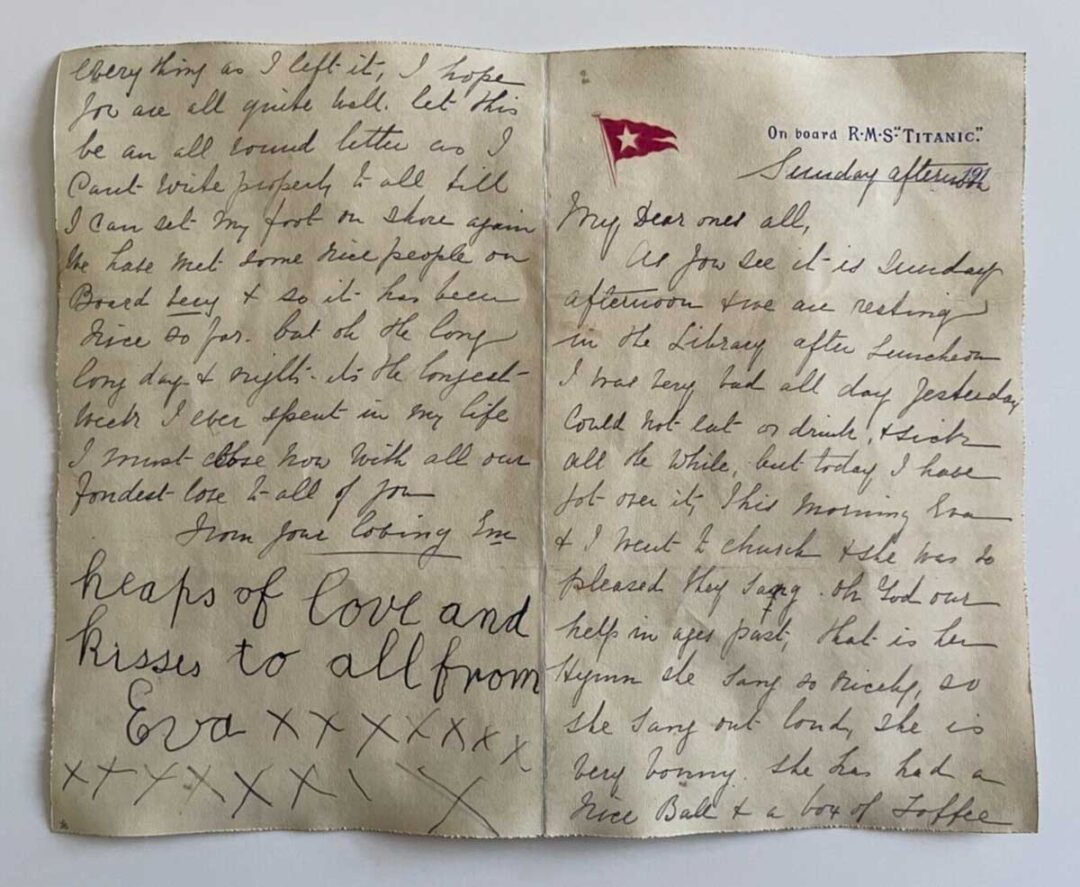 On board R·M·S "TITANIC."
Sunday afternoon
My Dear ones all,
As you see it is Sunday
afternoon & we are resting
in the Library after Luncheon
I was very bad all day yesterday
Could not eat or drink, & sick
all the while, but today I have
got over it, This morning Eva
& I went to church & she was so
pleased they sang. Oh God our
help in ages past, that is her
Hymn she sang so nicely, so
she sang out loud, she is
very bonny. She has had a
nice Ball & a box of Toffee
everything as I left it, I hope
you are all quite well. let this
be an all round letter as I
Cant write properly to all till
I can set my foot on shore again
We have met some nice people on
Board & so it has been
nice so far. but oh the long
long day & nights its the longest
week I ever spent in my life
I must close now with all our
fondest love to all of you
from your loving Em
heaps of love and
kisses to all from
Eva x x x x x x x
x x x x x x \ x